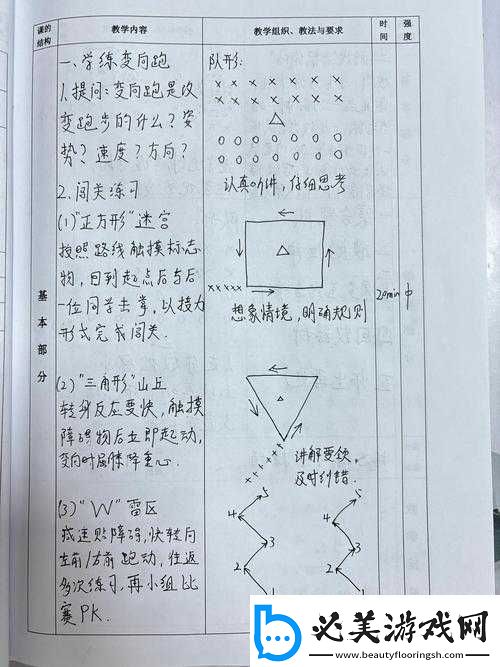 课的结构
教学内容
教学组织、教法与要求
时间
强度
基本部分
一、学练变向跑
1.提问：变向跑是改
变跑步的什么？姿
势？速度？方向？
2.闯关练习
(1)"正方形"迷宫
按照路线触摸标志
物，回到起点后与后
一位同学击掌，以接力
形式完成闯关.
(2)"三角形"山丘
转身反应要快，触摸
障碍物后立即起动，
变向时屈膝降重心.
(3)"W"雷区
减速贴障碍，快转向
左前/右前跑动，往返
多次练习，再小组比
赛PK.
队形：
× × × × × × ×
× × × × × × ×
○ ○ ○ ○ ○ ○ ○
○ ○ ○ ○ ○ ○ ○
认真听讲，仔细思考
×××××
想象情境，明确规则
××××××
讲解要领，
及时纠错.
5
4
3
2
1
5
4
3
2
1
20min
中
必美游戏网
www.beautyflooringsh.com